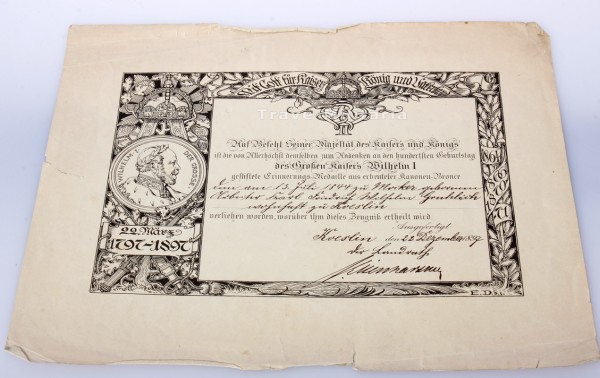 Mit Gott für Kaiser, König und Vaterland
Auf Befehl Seiner Majestät des Kaisers und Königs
ist die von Allerhöchst demselben zum Andenken an den hundertsten Geburtstag
des Großen Kaisers Wilhelm I
gestiftete Erinnerungs-Medaille aus erbeuteter Kanonen-Bronce
dem am 13. Juli 1844 zu geborenen
Karl Wilhelm
wohnhaft zu Koeslin
verliehen worden, worüber ihm dieses Zeugnis ertheilt wird.
Ausgefertigt
Koeslin, den 22 Dezember 1897
Der Landrath
WILHELM DER GROSSE
22. März
1797-1897
1864
1866
E.D.